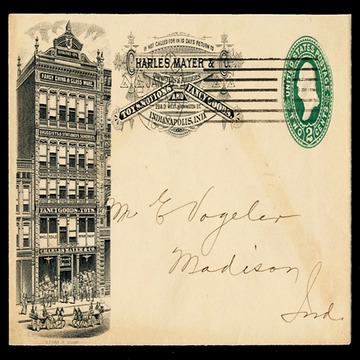 IF NOT CALLED FOR IN 10 DAYS RETURN TO
CHARLES MAYER & CO.
TOYS, NOTIONS AND FANCY GOODS.
INDIANAPOLIS, IND.
UNITED STATES POSTAGE
TWO 2 CENTS
FANCY CHINA & GLASS WARE.
DRUGGISTS & STATIONERS SUNDRIES
FANCY GOODS & TOYS.
CHARLES MAYER & CO.
M E Vogeler
Madison
Ind.